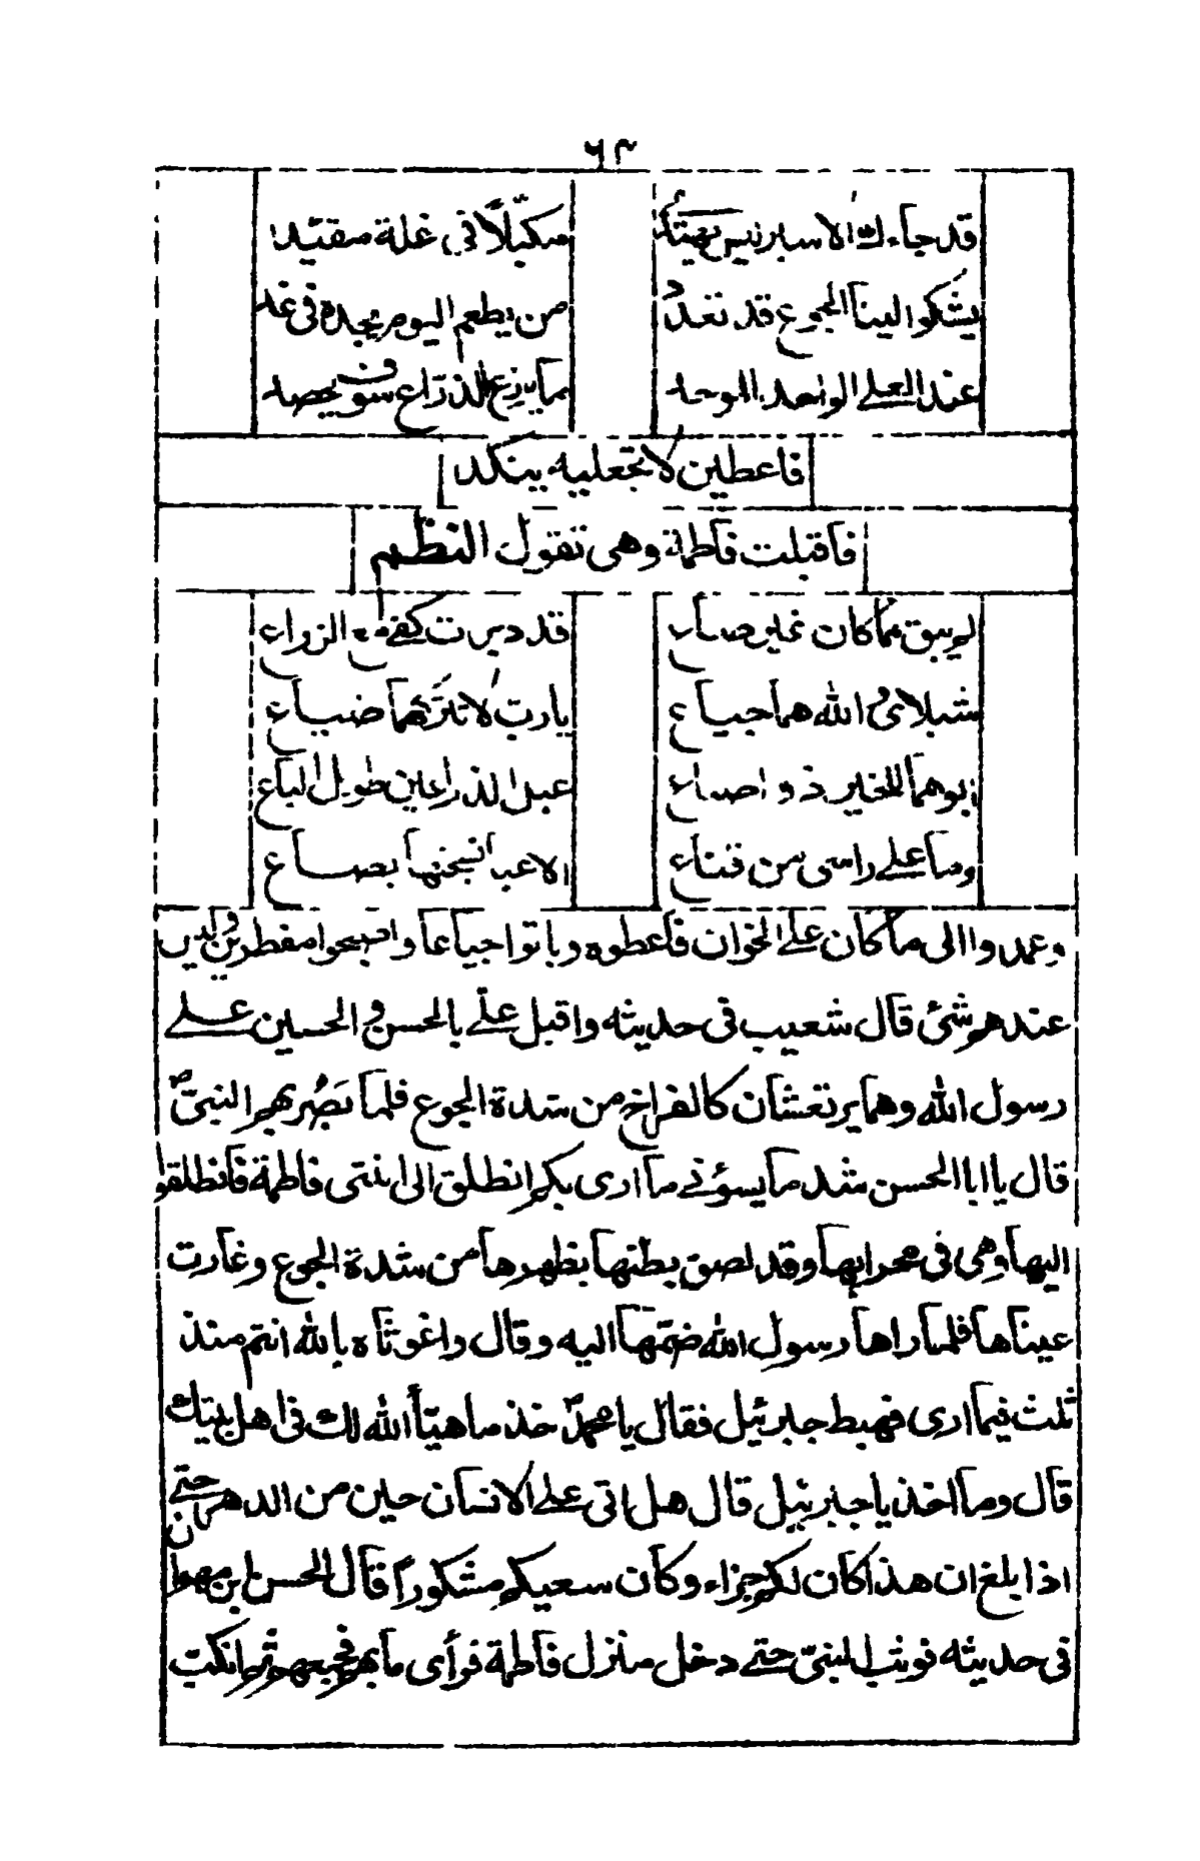 ٦٣
قد جاءك الاسير ليس يهتد مكبّلاً في غلة مقيّد
يشكوا الينا الجوع قد تقدّد من يطعم اليوم يجده في غد
عند العلي الواحد الموحد ما يزرع الزراع سوف يحصد
فاعطين لا تجعليه ينكد
فاقبلت فاطمة وهي تقول النظم
لم يبق مما كان غير صاع قد دبرت كفي مع الزراع
شبلاي والله هما جياع يا رب لا تتركهما ضياع
ابوهما للخير ذو اصطناع عبل الذراعين طويل الباع
وما علي راسي من قناع الا عبا نسجتها بصاع
وعمدوا الى ما كان علي الخوان فاعطوه وباتوا جياعا واصبحوا مفطرين وليس
عندهم شئ قال شعيب في حديثه واقبل عليّ بالحسن و الحسين علي
رسول الله وهما يرتعشان كالفراخ من شدة الجوع فلما بَصُر بهم النبيّ ص
قال يا ابا الحسن شد ما يسؤني ما ارى بكم انطلق الى ابنتى فاطمة فانطلقوا
اليها وهي في محرابها وقد لصق بطنها بظهرها من شدة الجوع وغارت
عيناها فلما راها رسول الله ضمّها اليه وقال واغوثاه بالله انتم منذ
ثلث فيما ارى فهبط جبرئيل فقال يا محمدؐ خذ ما هيّأ الله لك في اهل بيتك
قال وما اخذ يا جبرئيل قال هل اتى علي الانسان حين من الدهر حتي
اذا بلغ ان هذا كان لكم جزاء وكان سعيكم مشكوراً قال الحسن ابن مهران
في حديثه فوثب النبيّ حتي دخل منزل فاطمة فرأى ما بهم فجمعهم ثم انكب